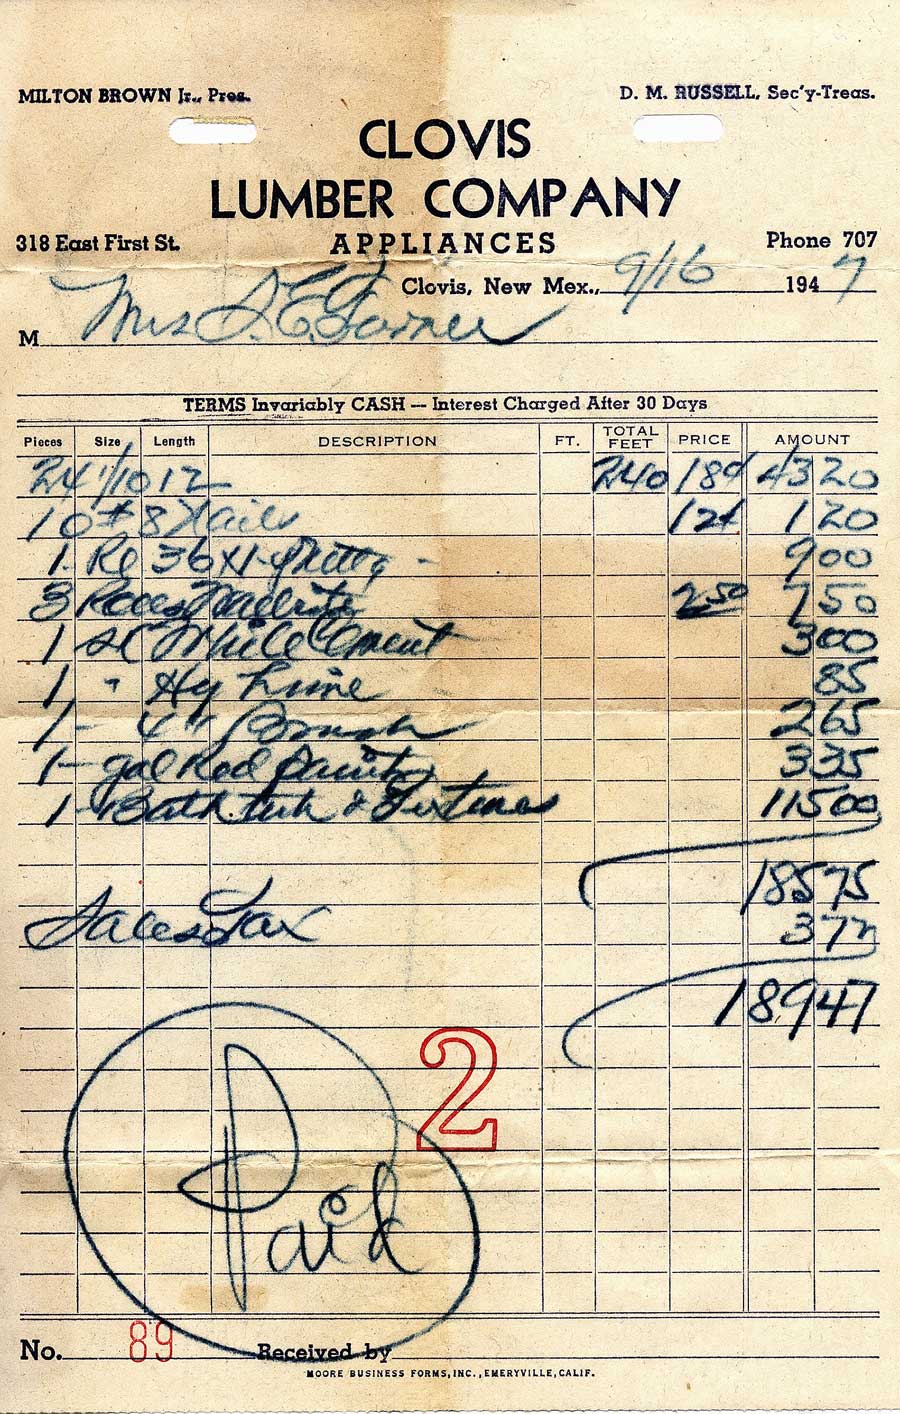 MILTON BROWN Jr., Pres. D. M. RUSSELL, Sec'y-Treas.
CLOVIS
LUMBER COMPANY
318 East First St. APPLIANCES Phone 707
Clovis, New Mex., 9/16 1947
M Mrs
TERMS Invariably CASH — Interest Charged After 30 Days
Pieces Size Length DESCRIPTION FT. TOTAL FEET PRICE AMOUNT
24 1/10 12 240 18¢ 4320
10 # 8 Nails 12¢ 120
1- 36x1- 900
3 2 50 750
1 White Cement 300
1 " Hy Lime 85
1- 4" Brush 265
1- gal Red Paint 335
1- Bath tub & Fixtures 11500
18575
Sales Tax 372
18947
2
Paid
No. 89 Received by
MOORE BUSINESS FORMS, INC., EMERYVILLE, CALIF.